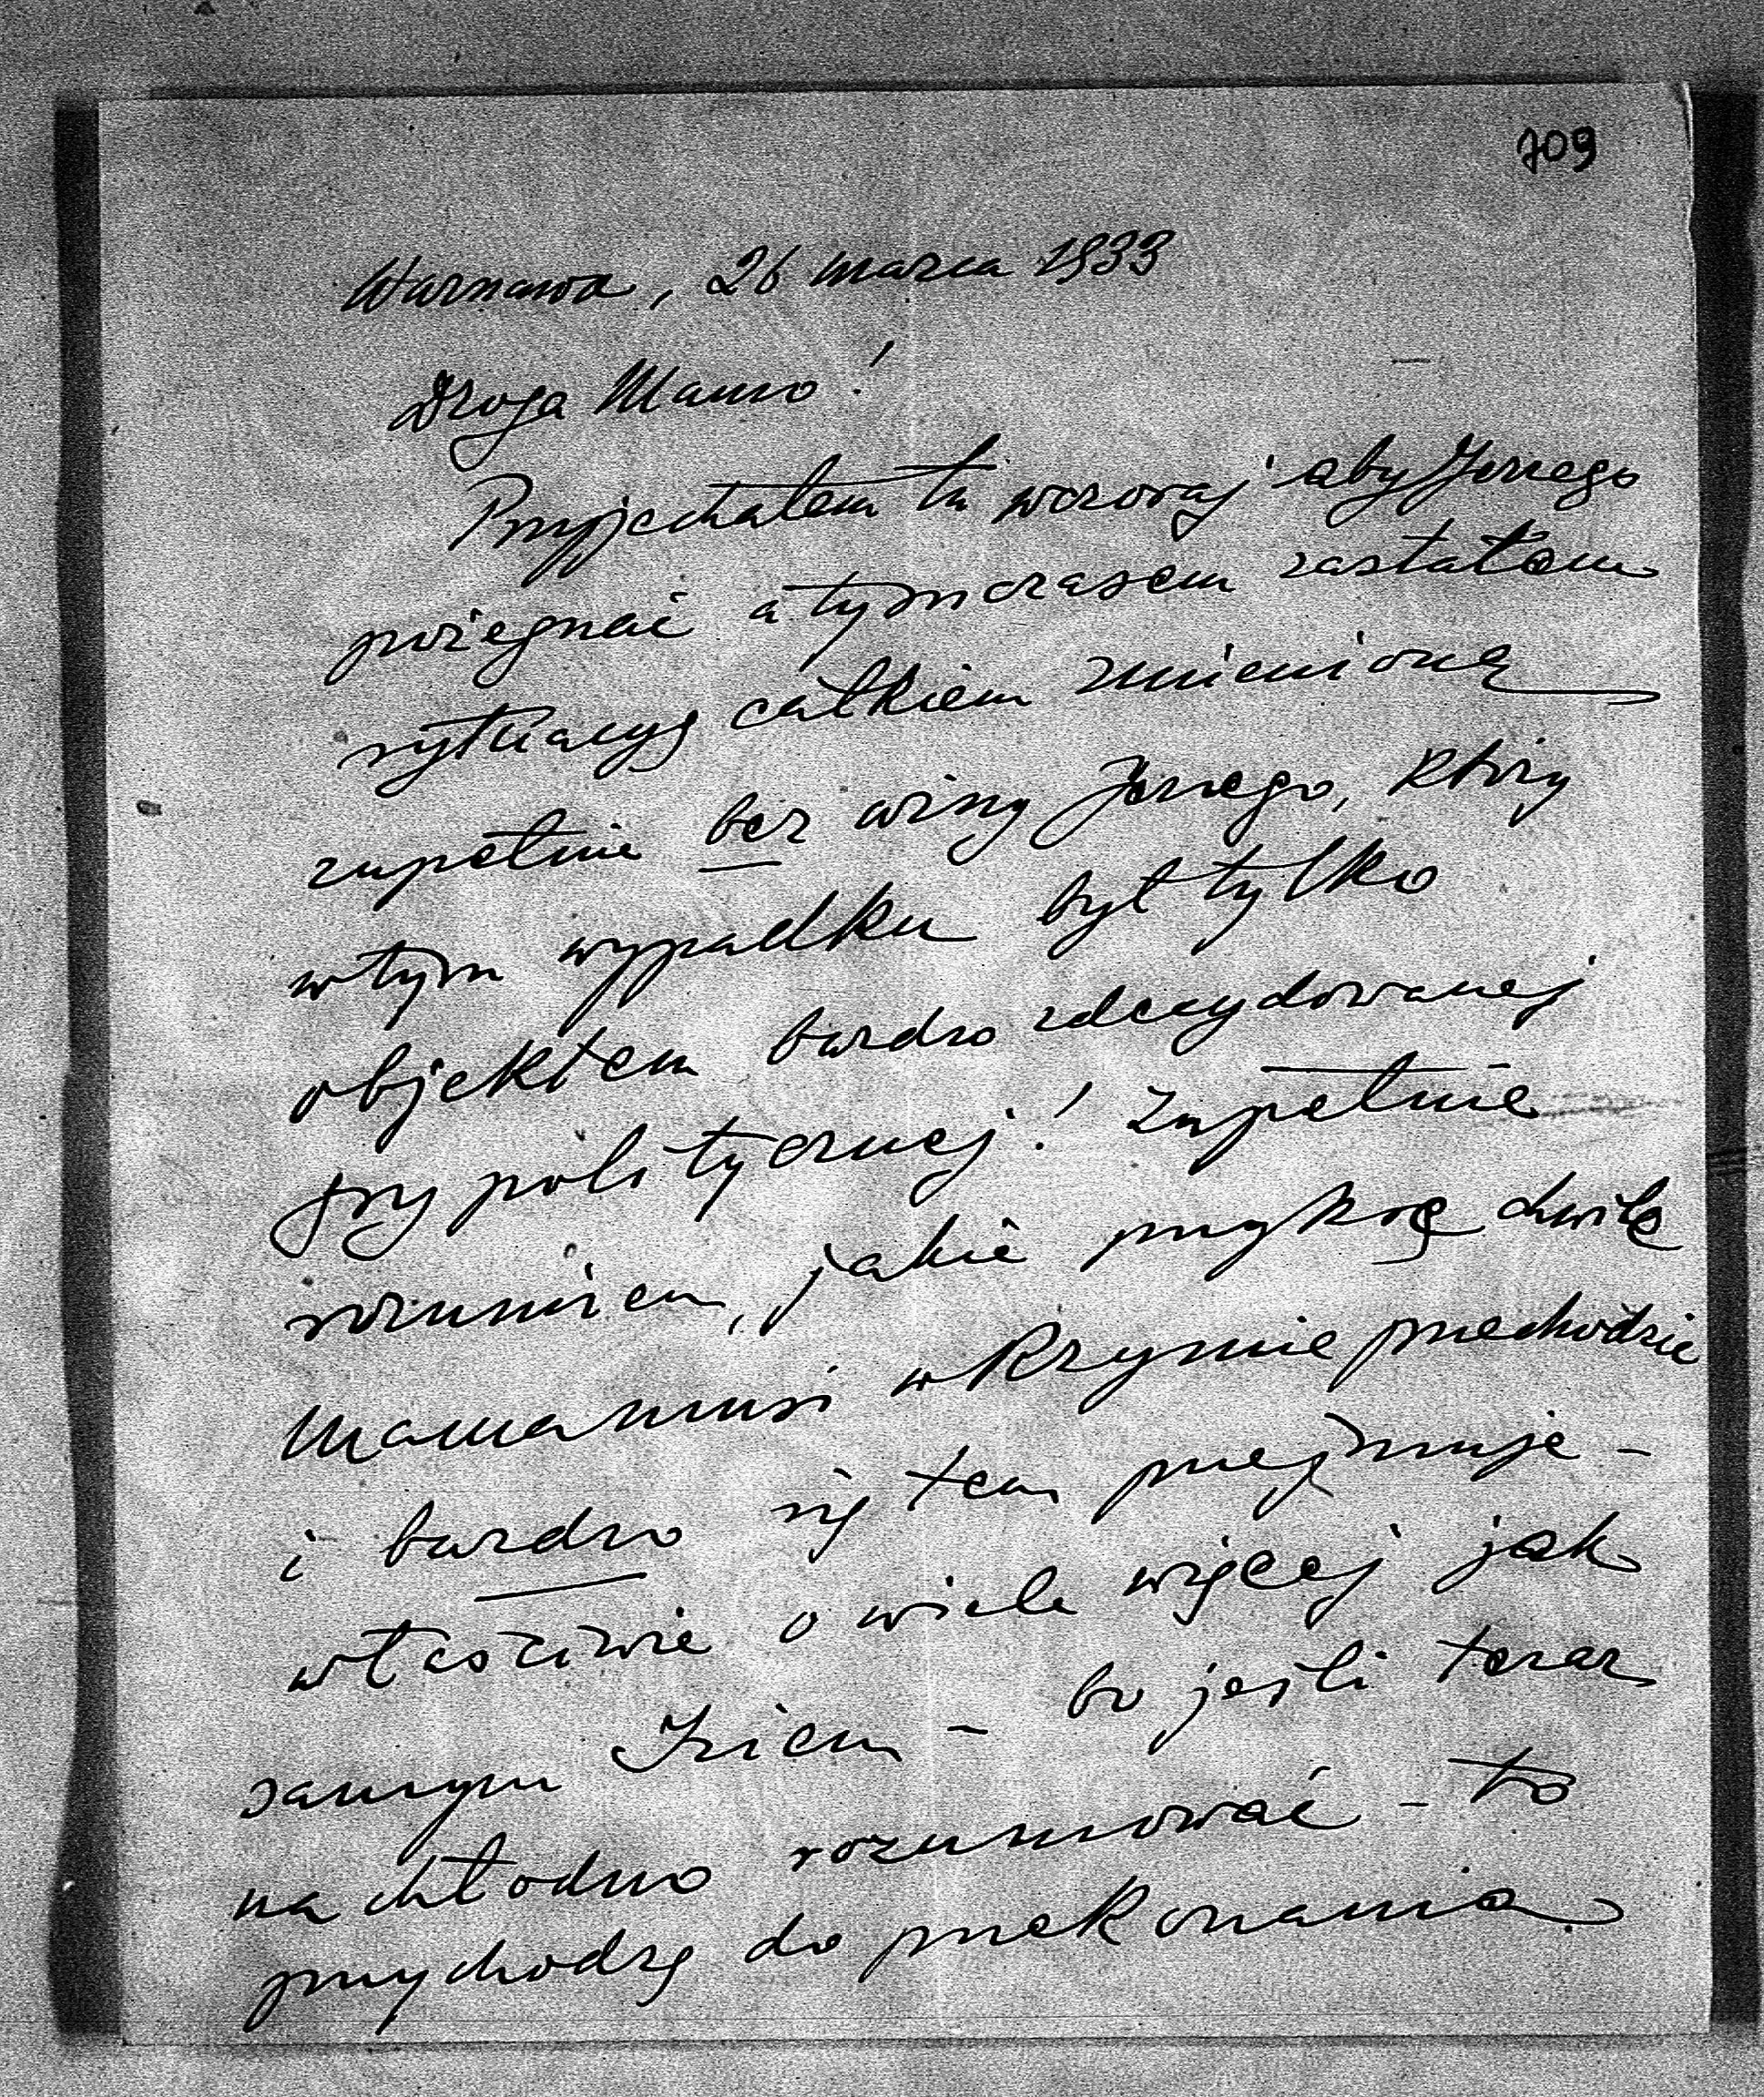 709
Warszawa, 26 marca 1933
Droga Mamo!
Przyjechałem tu wczoraj aby Jerzego
pożegnać a tymczasem zastałem
sytuację całkiem zmienioną
zupełnie bez winy Jerzego, który
w tym wypadku był tylko
objektem bardzo zdecydowanej
gry politycznej! Zupełnie
rozumiem, jakie przykrą chwilę
Mama musi w Rzymie przechodzić
i bardzo się tem przejmuję -
właściwie o wiele więcej jak
samym - bo jeśli teraz
na chłodno rozumować - to
przychodzę do przekonania